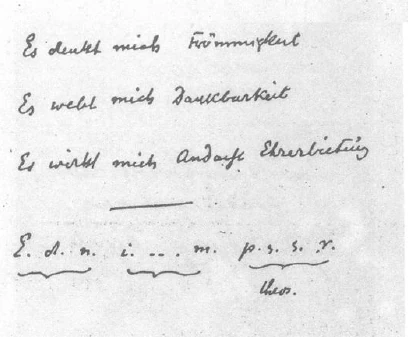 Es denkt mich Frömmigkeit
Es webt mich Dankbarkeit
Es wirkt mich Andacht Ehrerbietung
E. d. n. i. ... m. p. s. s. r.
theos.